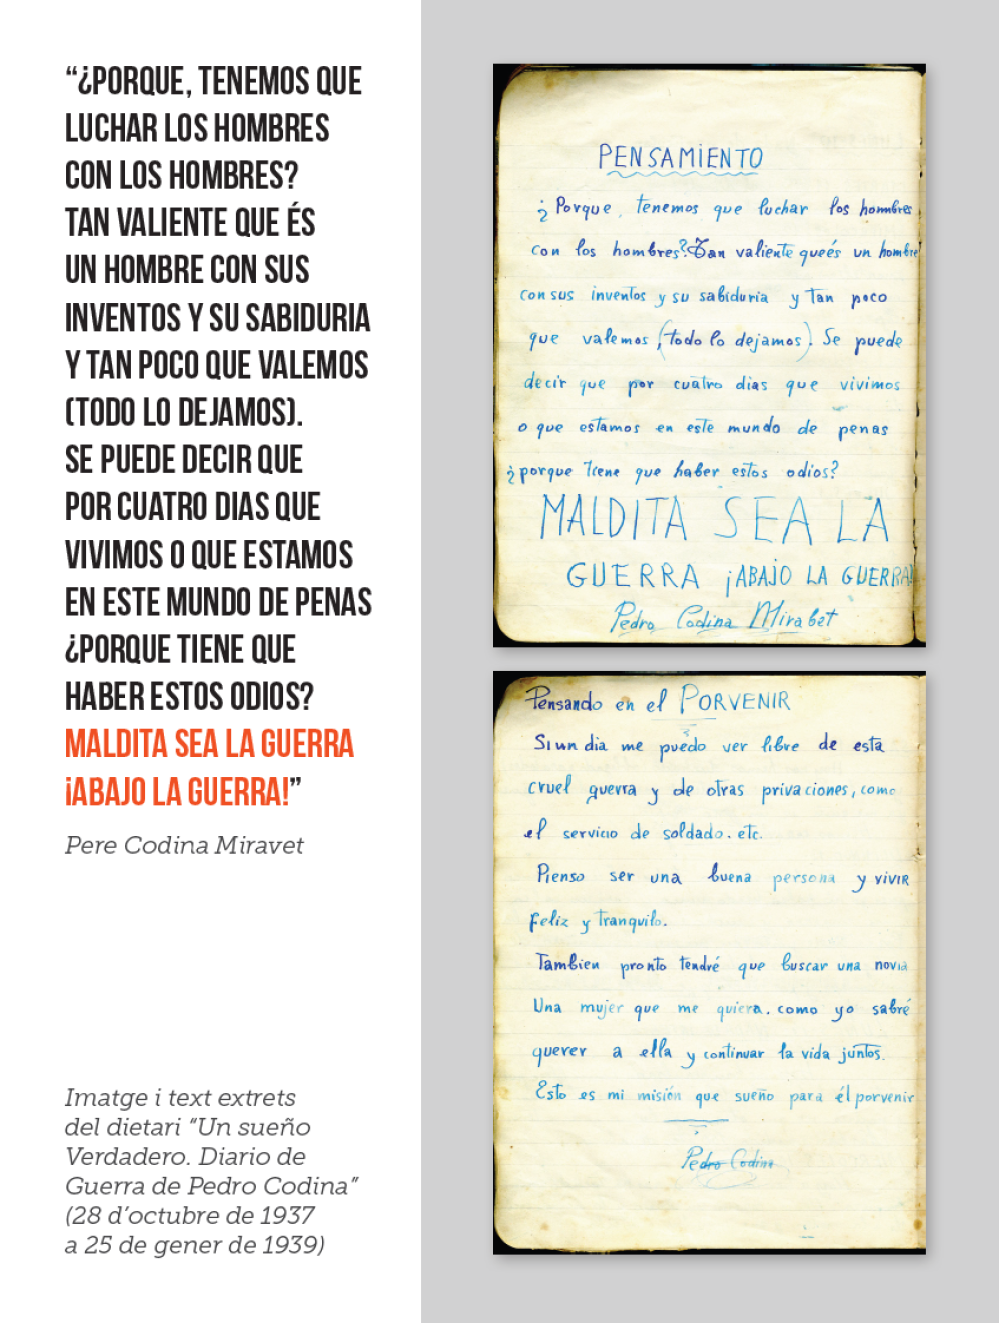 “¿PORQUE, TENEMOS QUE
LUCHAR LOS HOMBRES
CON LOS HOMBRES?
TAN VALIENTE QUE ÉS
UN HOMBRE CON SUS
INVENTOS Y SU SABIDURIA
Y TAN POCO QUE VALEMOS
(TODO LO DEJAMOS).
SE PUEDE DECIR QUE
POR CUATRO DIAS QUE
VIVIMOS O QUE ESTAMOS
EN ESTE MUNDO DE PENAS
¿PORQUE TIENE QUE
HABER ESTOS ODIOS?
MALDITA SEA LA GUERRA
¡ABAJO LA GUERRA!”
Pere Codina Miravet
Imatge i text extrets
del dietari “Un sueño
Verdadero. Diario de
Guerra de Pedro Codina”
(28 d’octubre de 1937
a 25 de gener de 1939)
PENSAMIENTO
¿Porque, tenemos que luchar los hombres
con los hombres? Tan valiente queés un hombre
con sus inventos y su sabiduria y Tan poco
que valemos (todo lo dejamos). Se puede
decir que por cuatro dias que vivimos
o que estamos en este mundo de penas
¿porque tiene que haber estos odios?
MALDITA SEA LA
GUERRA ¡ABAJO LA GUERRA!
Pedro Codina Mirabet
Pensando en el PORVENIR
Si un dia me puedo ver libre de esta
cruel guerra y de otras privaciones, como
el servicio de soldado. etc.
Pienso ser una buena persona y vivir
feliz y tranquilo.
Tambien pronto tendré que buscar una novia
Una mujer que me quiera. como yo sabré
querer a ella y continuar la vida juntos.
Esto es mi misión que sueño para él porvenir
Pedro Codina